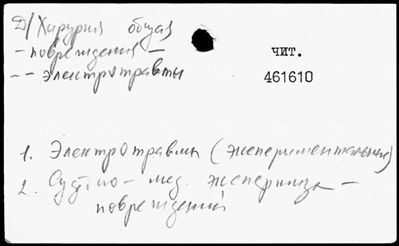 Д/Хирургия общая
– повреждения –
– – электротравмы
чит.
461610
1. Электротравмы (экспериментальные)
2. Судебно-мед. экспертиза –
повреждений